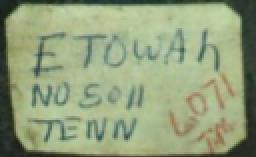 ETOWAh
NO 5011
TENN
6071